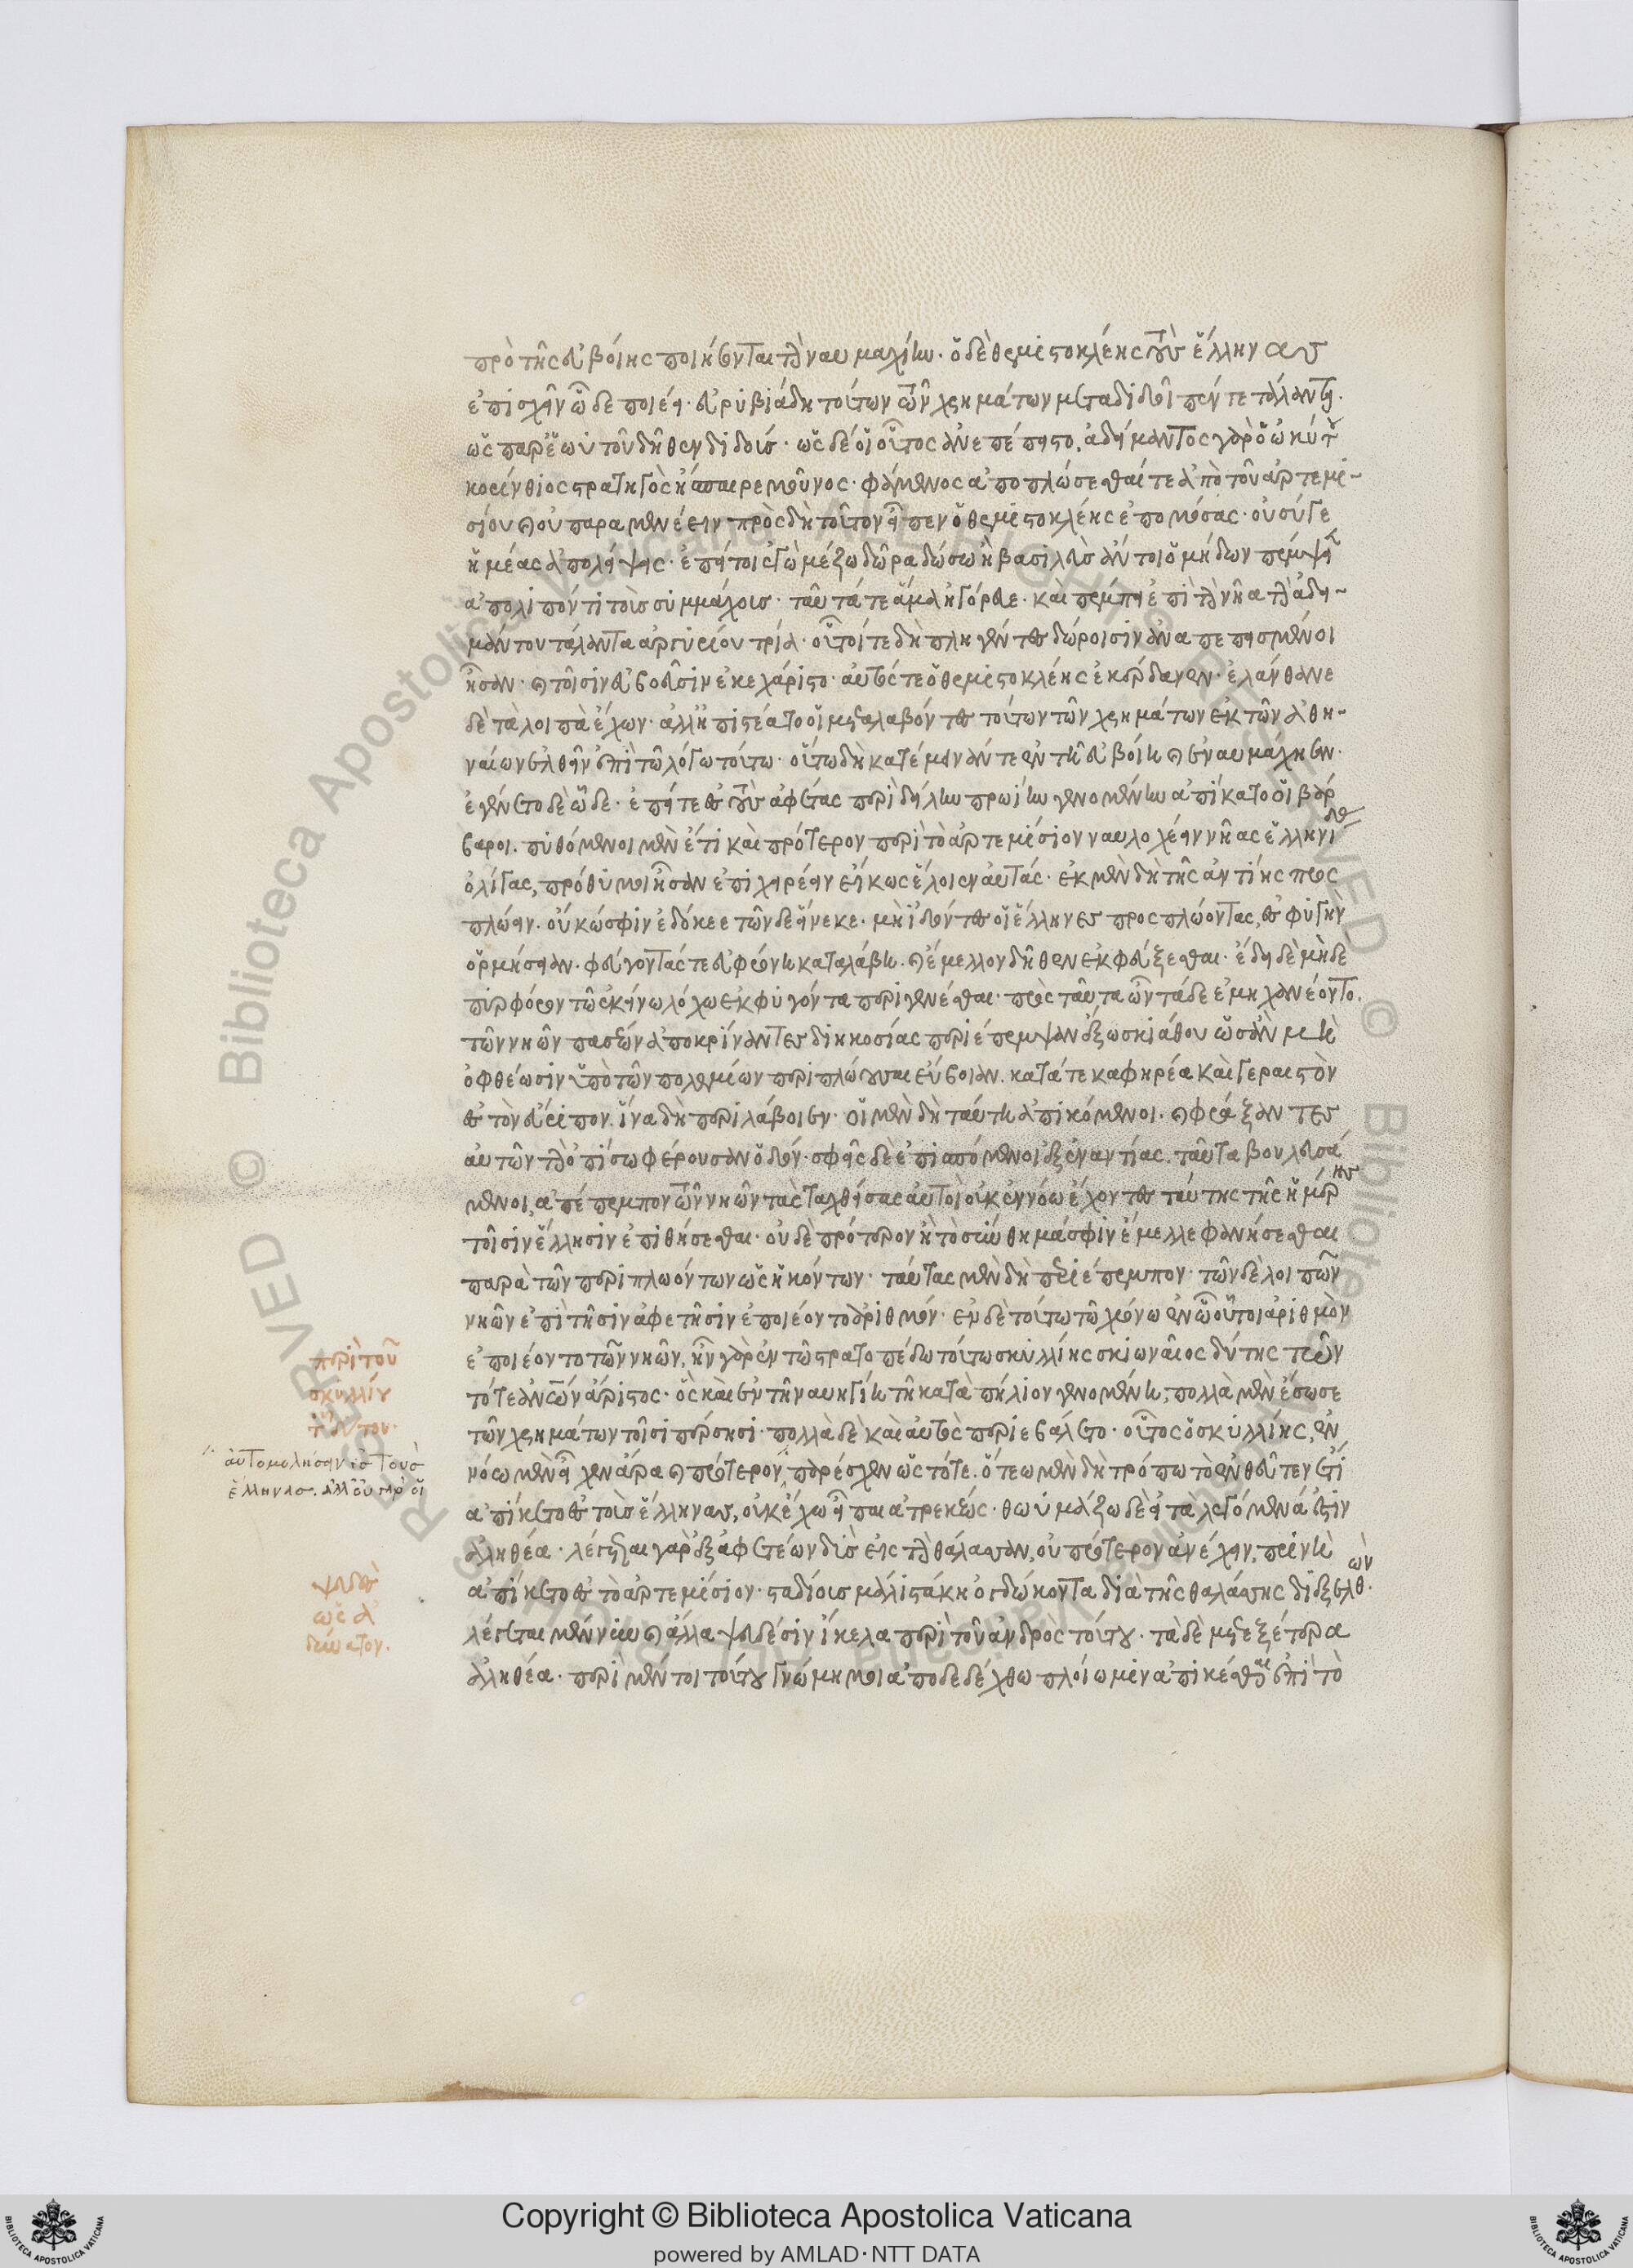 πρὸ τῆς εὐβοίης ποιήσονται τὴν ναυμαχίην· ὁ δὲ θεμιστοκλέης τοὺς ἕλληνας
ἐπισχεῖν ὧδε ποιέει· εὐρυβιάδῃ τούτων τῶν χρημάτων μεταδιδοῖ πέντε τάλαντα·
ὡς παρ' ἑωυτοῦ δῆθεν διδούς· ὡς δέ οἱ οὗτος ἀνεπέπειστο, ἀδείμαντος γὰρ ὁ ὠκύτου
κορίνθιος στρατηγὸς ἤσπαιρε μοῦνος· φάμενος ἀποπλώσεσθαί τε ἀπὸ τοῦ ἀρτεμι-
σίου καὶ οὐ παραμενέειν πρὸς δὴ τοῦτον εἶπεν ὁ θεμιστοκλέης ἐπομόσας· οὐ σύ γε
ἡμέας ἀπολείψεις· ἐπεί τοι ἐγὼ μέζω δῶρα δώσω ἢ βασιλεὺς ἄν τοι ὁ μήδων πέμψειε
ἀπολιπόντι τοὺς συμμάχους· ταῦτά τε ἅμα ἠγόρευε· καὶ πέμπει ἐπὶ τὴν νῆα τὴν ἀδει-
μάντου τάλαντα ἀργυρίου τρία· οὗτοί τε δὴ πληγέντες δώροισιν ἀναπεπεισμένοι
ἦσαν· καὶ τοῖσιν εὐβοεῦσιν ἐκεχάριστο· αὐτός τε ὁ θεμιστοκλέης ἐκέρδανεν· ἐλάνθανε
δὲ τὰ λοιπὰ ἔχων· ἀλλ' ἠπιστέατο οἱ μεταλαβόντες τούτων τῶν χρημάτων ἐκ τῶν ἀθη-
ναίων ἐλθεῖν ἐπὶ τῷ λόγῳ τούτῳ· οὕτω δὴ κατέμειναν τε ἐν τῇ εὐβοίῃ καὶ ἐναυμάχησαν·
ἐγένετο δὲ ὧδε· ἐπείτε ἐς τοὺς ἀφετὰς περὶ δείλην πρωίην γενομένην ἀπίκατο οἱ βάρ
βαροι. πυθόμενοι μὲν ἔτι καὶ πρότερον περὶ τὸ ἀρτεμίσιον ναυλοχέειν νῆας ἑλληνίδας
ὀλίγας, πρόθυμοι ἦσαν ἐπιχειρέειν εἴ κως ἕλοιεν αὐτάς· ἐκ μὲν δὴ τῆς ἀντίης προς
πλώειν· οὔ κώ σφιν ἐδόκεε τῶνδε εἵνεκε· μὴ ἰδόντες οἱ ἕλληνες προσπλώοντας, ἐς φυγὴν
ὁρμήσειαν· φεύγοντάς τε εὐφρόνη καταλάβῃ. καὶ ἔμελλον δῆθεν ἐκφεύξεσθαι· ἔδει δὲ μηδὲ
πυρφόρον τῷ ἐκείνω λόγῳ ἐκφυγόντα περιγενέσθαι· πρὸς ταῦτα ὦν τάδε ἐμηχανέοντο.
τῶν νηῶν πασέων ἀποκρίναντες διηκοσίας περιέπεμψαν ἔξω σκιάθου ὡς ἂν μὴ
ὀφθέωσιν ὑπὸ τῶν πολεμίων περιπλώουσαι εὔβοιαν. κατά τε καφηρέα καὶ γεραιστὸν
ἐς τὸν εὔριπον. ἵνα δὴ περιλάβοιεν· οἱ μὲν δὴ ταύτῃ ἀπικόμενοι· καὶ φράξαντες
αὐτῶν τὴν ὀπίσω φέρουσαν ὁδόν· σφεῖς δὲ ἐπισπόμενοι ἐξ ἐναντίας. ταῦτα βουλευσά
μενοι, ἀπέπεμπον τῶν νηῶν τὰς ταχθείσας αὐτοὶ οὐκ ἐν νόῳ ἔχοντες ταύτης τῆς ἡμέρης
τοῖσιν ἕλλησιν ἐπιθήσεσθαι· οὐδὲ πρότερον ἢ τὸ σύνθημά σφιν ἔμελλε φανήσεσθαι
παρὰ τῶν περιπλωόντων ὡς ἡκόντων· ταύτας μὲν δὴ περιέπεμπον· τῶν δὲ λοιπῶν
νηῶν ἐπὶ τῇσιν ἀφετῇσιν ἐποιέοντο ἀριθμόν· ἐν δὲ τούτῳ τῷ χρόνῳ ἐν ᾧ οὗτοι ἀριθμὸν
ἐποιέοντο τῶν νηῶν, ἦν γὰρ ἐν τῷ στρατοπέδῳ τούτῳ σκυλλίης σκιωναῖος δύτης τῶν
τότε ἀνθρώπων ἄριστος· ὃς καὶ ἐν τῇ ναυηγίῃ τῇ κατὰ πήλιον γενομένῃ, πολλὰ μὲν ἔσωσε
τῶν χρημάτων τοῖσι πέρσησι· πολλὰ δὲ καὶ αὐτὸς περιεβάλετο· οὗτος ὁ σκυλλίης, ἐν
νόῳ μὲν εἶχεν ἄρα καὶ πρότερον, παρέσχεν ὡς τότε. ὅτεῳ μὲν δὴ τρόπῳ τὸ ἐνθεῦτεν ἔτι
ἀπίκετο ἐς τοὺς ἕλληνας, οὐκ ἔχω εἶπαι ἀτρεκέως· θωυμάζω δὲ εἰ τὰ λεγόμενά ἐστιν
ἀληθέα· λέγεται γὰρ ἐξ ἀφετέων δὺς εἰς τὴν θάλασσαν, οὐ πρότερον ἀνέσχεν, πρὶν ἢ
ἀπίκετο ἐς τὸ ἀρτεμίσιον· σταδίους μάλιστά κη ὀγδώκοντα διὰ τῆς θαλάσσης διεξελθών.
λέγεται μέν νυν καὶ ἄλλα ψευδέσιν ἴκελα περὶ τοῦ ἀνδρὸς τούτου· τὰ δὲ μετεξέτερα
ἀληθέα· περὶ μέντοι τούτου γνώμη μοι ἀποδεδέχθω πλοίῳ μιν ἀπικέσθαι ἐπὶ τὸ
περὶ τοῦ
σκυλλίου
τοῦ δύτου·
αὐτομολήσειν ἐς τοὺς
ἕλληνας. ἀλλ' οὐ γὰρ οἱ
ψεῦδος
ὡς ἀ
δύνατον.
Copyright © Biblioteca Apostolica Vaticana
powered by AMLAD·NTT DATA